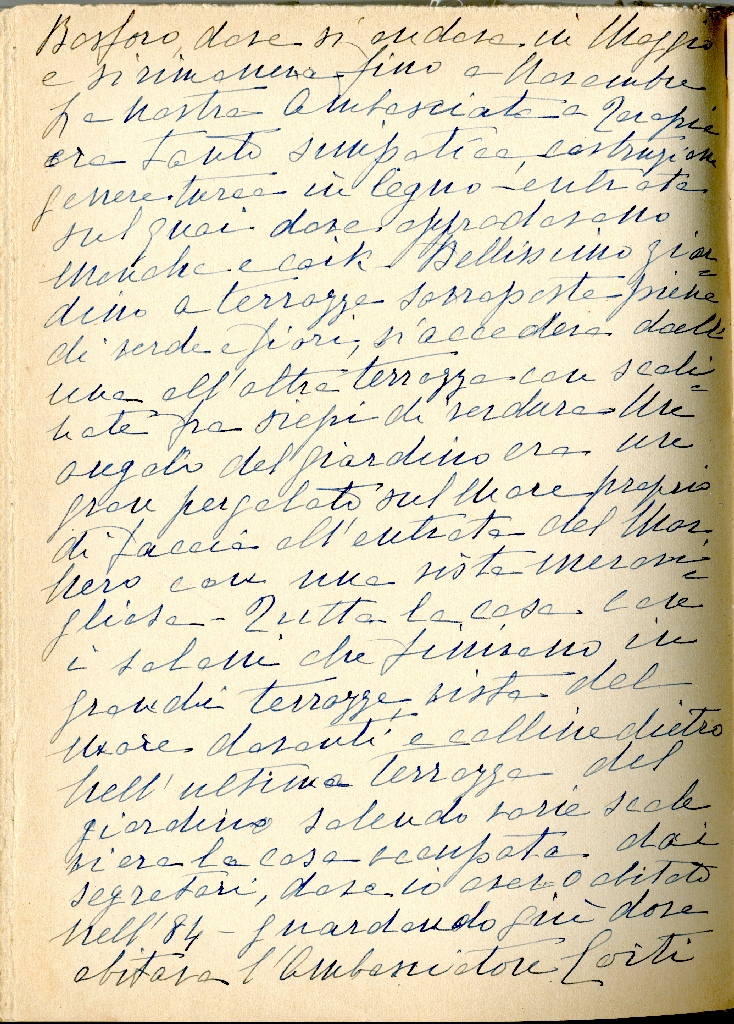 Bosforo, dove si andava in Maggio
e si rimaneva fino a Novembre
La nostra Ambasciata a Terapia
era tanto simpatica, costruzione
genere turca in legno – entrata
sul quai dove approdavano
mouche e caik. Bellissimo giar=
dino a terrazze sovraposte piene
di verde e fiori, s'accedeva dall'
una all'altra terrazza con scali=
nate fra siepi di verdura. Un
angolo del giardino era un
gran pergolato sul mare proprio
di faccia all'entrata del Mar
Nero con una vista meravi=
gliosa – Tutta la casa con
i saloni che finivano in
grandi terrazze, vista del
mare davanti, e colline dietro
nell'ultima terrazza del
giardino salendo varie scale
vi era la casa occupata dai
segretari, dove io avevo abitato
nell'84 – guardando giù dove
abitava l'Ambasciatore Corti